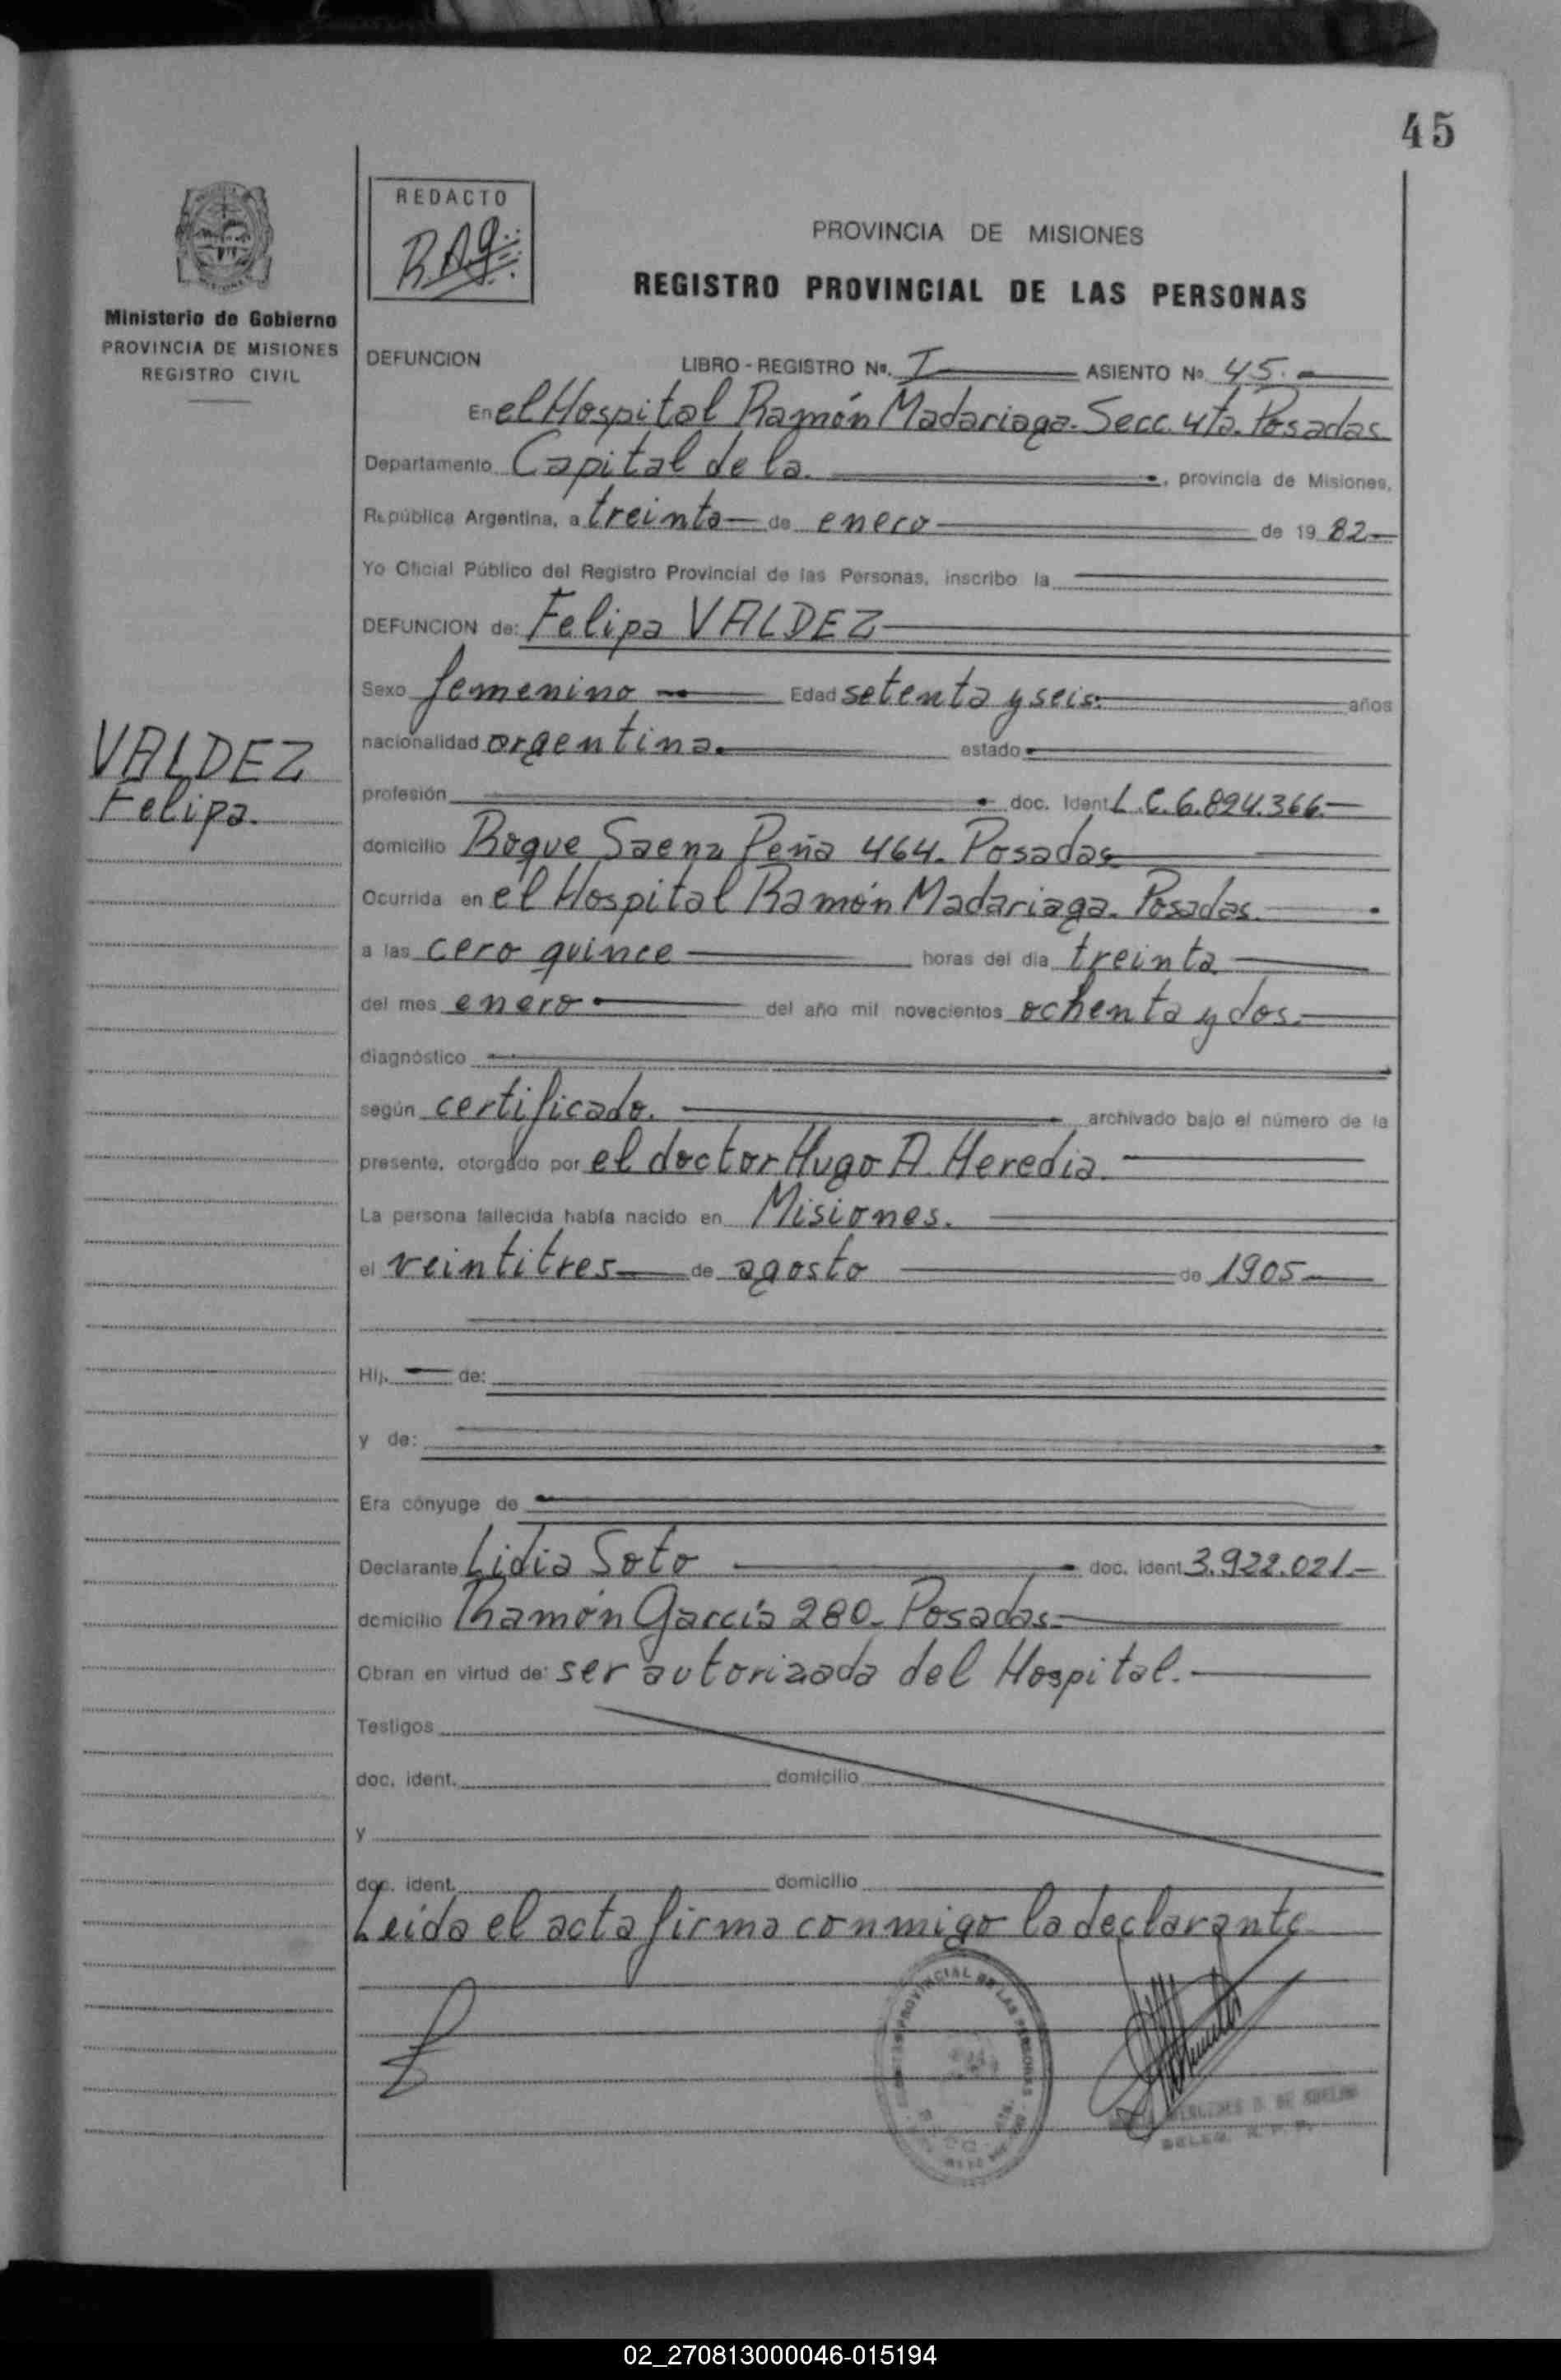 45
REDACTO
RAG
PROVINCIA DE MISIONES
REGISTRO PROVINCIAL DE LAS PERSONAS
Ministerio de Gobierno
PROVINCIA DE MISIONES
REGISTRO CIVIL
DEFUNCION LIBRO - REGISTRO Nº. I ASIENTO Nº 45.
En el Hospital Ramón Madariaga. Secc. 4ta. Posadas
Departamento Capital de la. , provincia de Misiones,
República Argentina, a treinta de enero de 19 82
Yo Oficial Público del Registro Provincial de las Personas, inscribo la
DEFUNCION de: Felipa VALDEZ
Sexo femenino Edad setenta y seis años
VALDEZ
Felipa.
nacionalidad argentina. estado
profesión doc. Ident L.C. 6.894.366.
domicilio Roque Saenz Peña 464. Posadas
Ocurrida en el Hospital Ramón Madariaga. Posadas.
a las cero quince horas del día treinta
del mes enero del año mil novecientos ochenta y dos.
diagnóstico
según certificado. archivado bajo el número de la
presente, otorgado por el doctor Hugo A. Heredia.
La persona fallecida había nacido en Misiones.
el veintitres de agosto de 1905
Hij. de:
y de:
Era cónyuge de
Declarante Lidia Soto doc. ident. 3.922.021.-
domicilio Ramón García 280. Posadas.
Obran en virtud de: ser autorizada del Hospital.
Testigos
doc. ident. domicilio
y
doc. ident. domicilio
Leída el acta firma conmigo la declarante
PROVINCIAL DE LAS PERSONAS
DELEG. R. P. P.
02_270813000046-015194